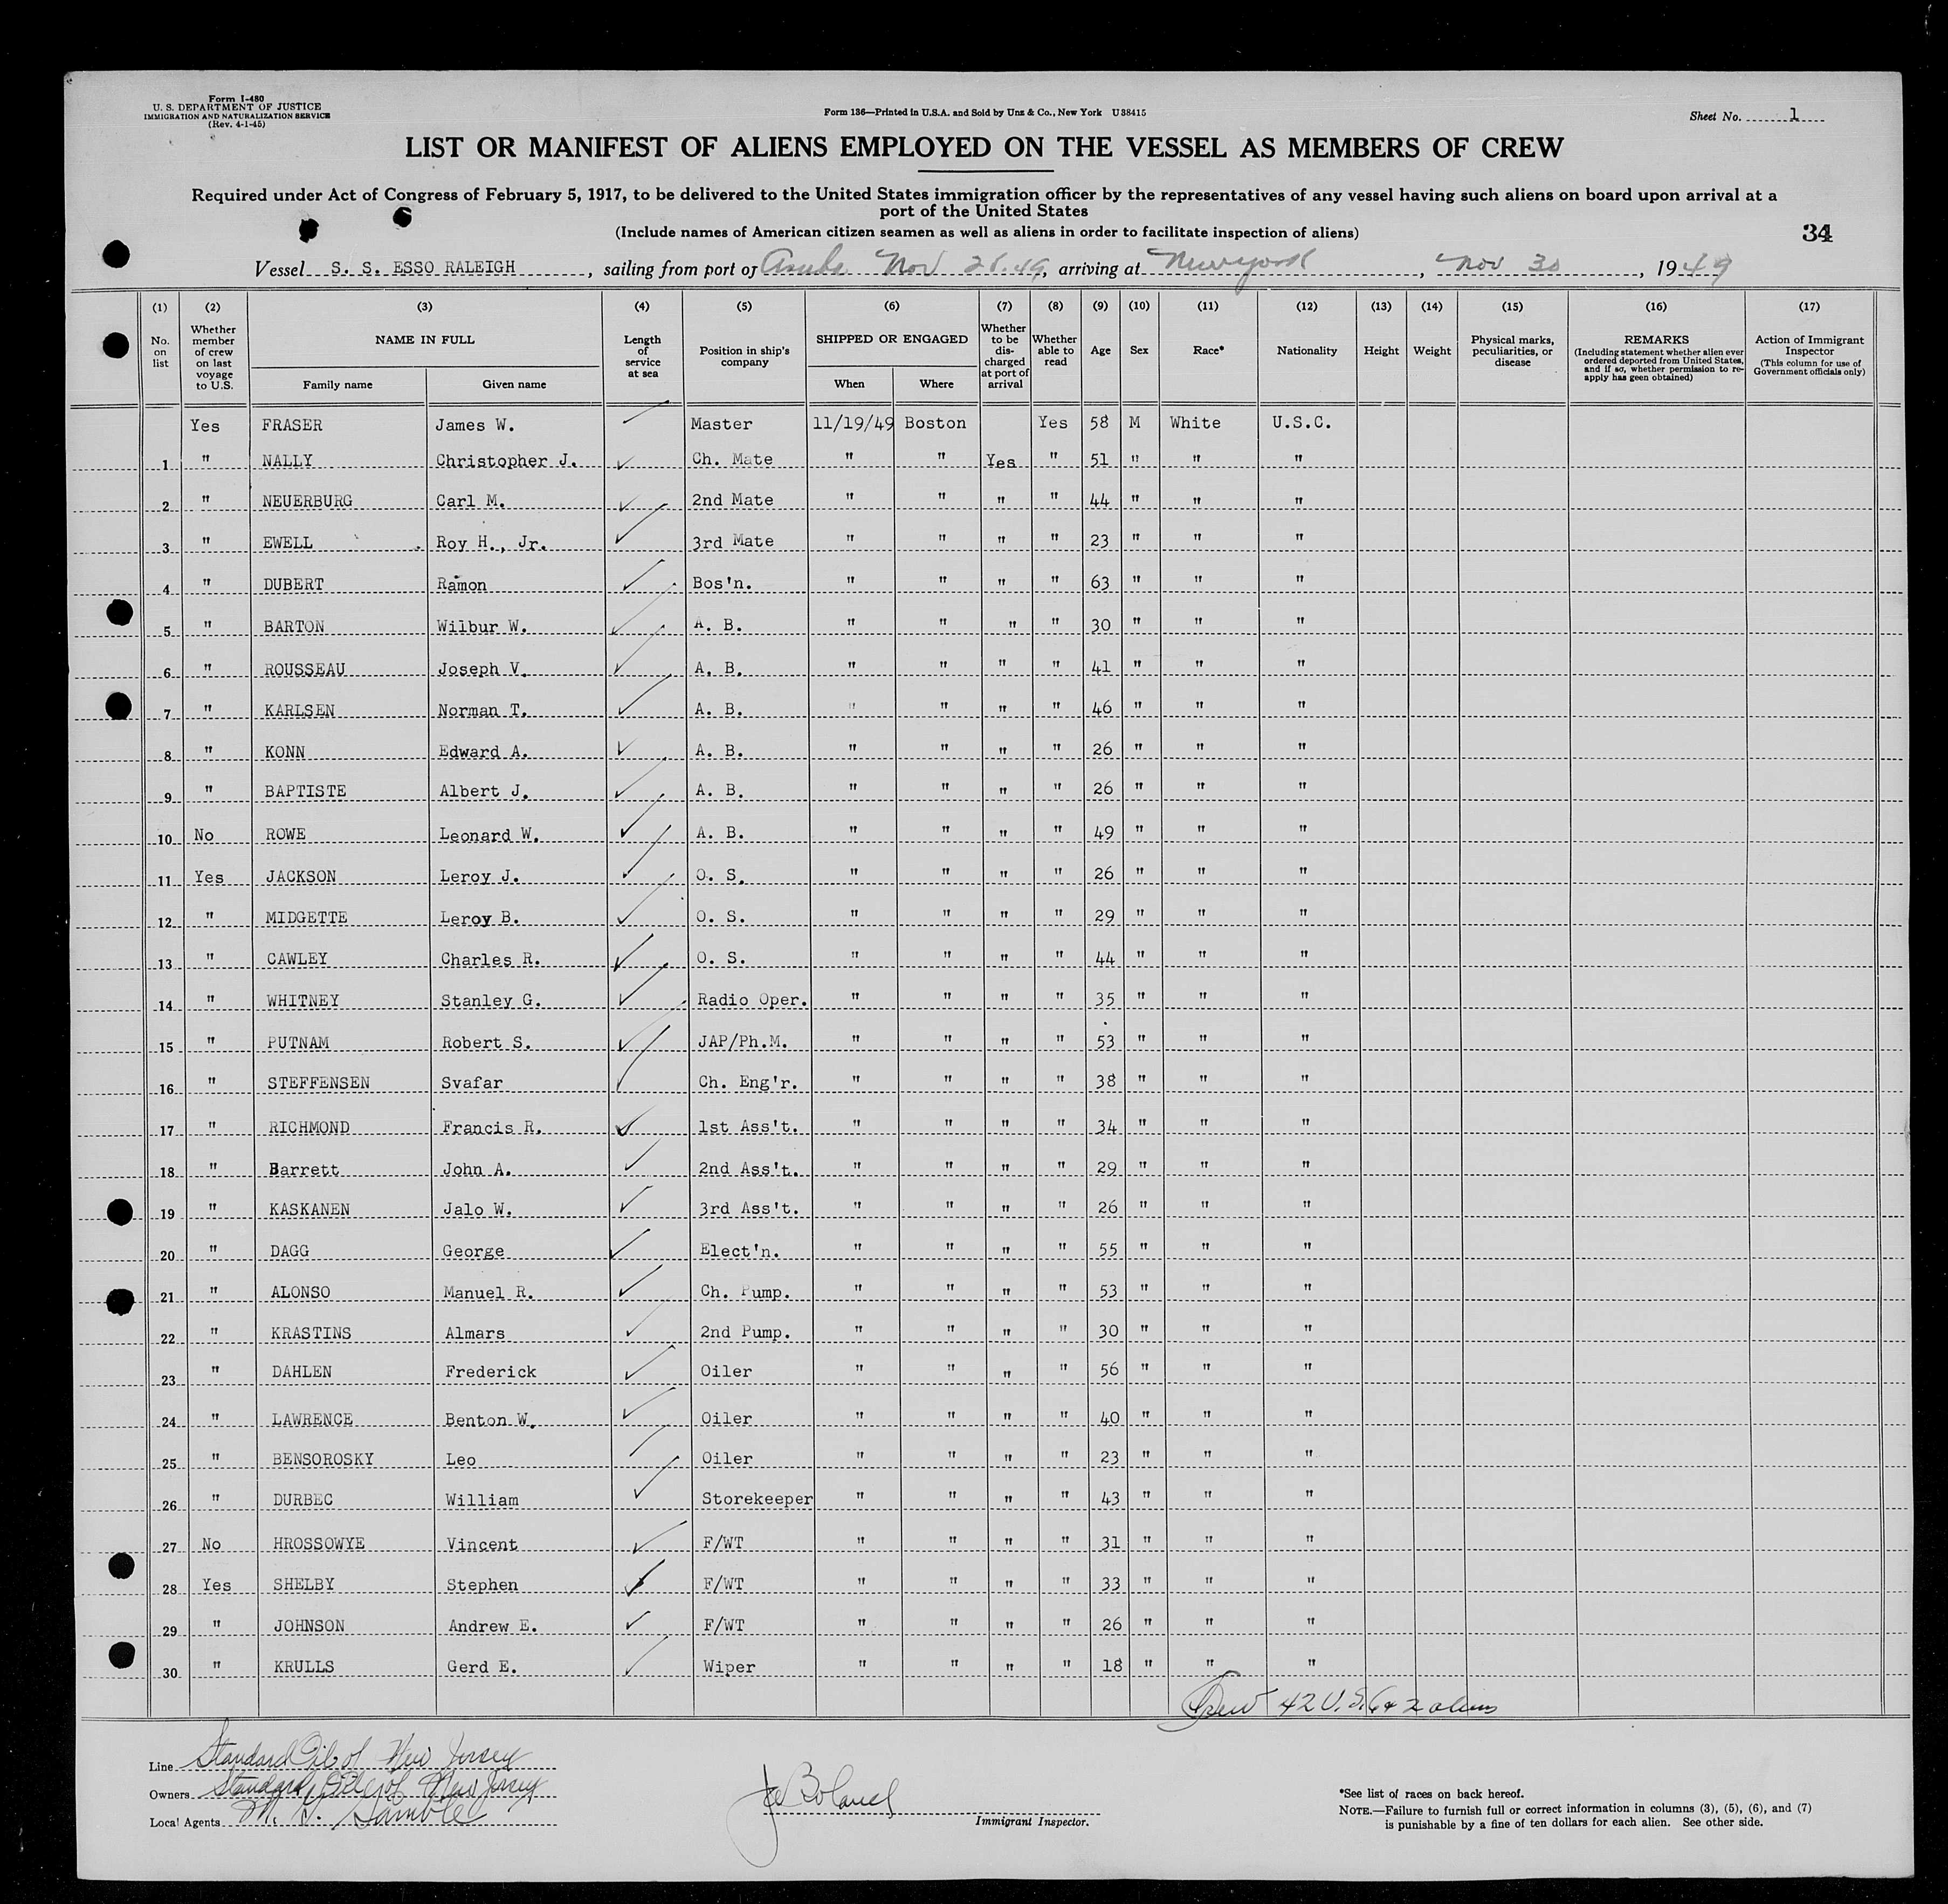 Form I-480
U. S. DEPARTMENT OF JUSTICE
IMMIGRATION AND NATURALIZATION SERVICE
(Rev. 4-1-45)
Form 136—Printed in U.S.A. and Sold by Unz & Co., New York U38415
Sheet No. 1
LIST OR MANIFEST OF ALIENS EMPLOYED ON THE VESSEL AS MEMBERS OF CREW
Required under Act of Congress of February 5, 1917, to be delivered to the United States immigration officer by the representatives of any vessel having such aliens on board upon arrival at a
port of the United States
(Include names of American citizen seamen as well as aliens in order to facilitate inspection of aliens)
34
Vessel S. S. ESSO RALEIGH, sailing from port of Aruba Nov 26.49, arriving at New York, Nov 30, 1949
(1) (2) (3) (4) (5) (6) (7) (8) (9) (10) (11) (12) (13) (14) (15) (16) (17)
No. on list Whether member of crew on last voyage to U.S. NAME IN FULL Family name Given name Length of service at sea Position in ship's company SHIPPED OR ENGAGED When Where Whether to be dis-charged at port of arrival Whether able to read Age Sex Race* Nationality Height Weight Physical marks, peculiarities, or disease REMARKS (Including statement whether alien ever ordered deported from United States, and if so, whether permission to re-apply has geen obtained) Action of Immigrant Inspector (This column for use of Government officials only)
Yes FRASER James W. Master 11/19/49 Boston Yes 58 M White U.S.C.
1 " NALLY Christopher J. Ch. Mate " " Yes " 51 " " "
2 " NEUERBURG Carl M. 2nd Mate " " " " 44 " " "
3 " EWELL Roy H., Jr. 3rd Mate " " " " 23 " " "
4 " DUBERT Ramon Bos'n. " " " " 63 " " "
5 " BARTON Wilbur W. A. B. " " " " 30 " " "
6 " ROUSSEAU Joseph V. A. B. " " " " 41 " " "
7 " KARLSEN Norman T. A. B. " " " " 46 " " "
8 " KONN Edward A. A. B. " " " " 26 " " "
9 " BAPTISTE Albert J. A. B. " " " " 26 " " "
10 No ROWE Leonard W. A. B. " " " " 49 " " "
11 Yes JACKSON Leroy J. O. S. " " " " 26 " " "
12 " MIDGETTE Leroy B. O. S. " " " " 29 " " "
13 " CAWLEY Charles R. O. S. " " " " 44 " " "
14 " WHITNEY Stanley G. Radio Oper. " " " " 35 " " "
15 " PUTNAM Robert S. JAP/Ph.M. " " " " 53 " " "
16 " STEFFENSEN Svafar Ch. Eng'r. " " " " 38 " " "
17 " RICHMOND Francis R. 1st Ass't. " " " " 34 " " "
18 " Barrett John A. 2nd Ass't. " " " " 29 " " "
19 " KASKANEN Jalo W. 3rd Ass't. " " " " 26 " " "
20 " DAGG George Elect'n. " " " " 55 " " "
21 " ALONSO Manuel R. Ch. Pump. " " " " 53 " " "
22 " KRASTINS Almars 2nd Pump. " " " " 30 " " "
23 " DAHLEN Frederick Oiler " " " " 56 " " "
24 " LAWRENCE Benton W. Oiler " " " " 40 " " "
25 " BENSOROSKY Leo Oiler " " " " 23 " " "
26 " DURBEC William Storekeeper " " " " 43 " " "
27 No HROSSOWYE Vincent F/WT " " " " 31 " " "
28 Yes SHELBY Stephen F/WT " " " " 33 " " "
29 " JOHNSON Andrew E. F/WT " " " " 26 " " "
30 " KRULLS Gerd E. Wiper " " " " 18 " " "
Crew 42 U.S.C. 2 aliens
Line Standard Oil of New Jersey
Owners Standard Oil of New Jersey
Local Agents
Immigrant Inspector.
*See list of races on back hereof.
NOTE.—Failure to furnish full or correct information in columns (3), (5), (6), and (7)
is punishable by a fine of ten dollars for each alien. See other side.